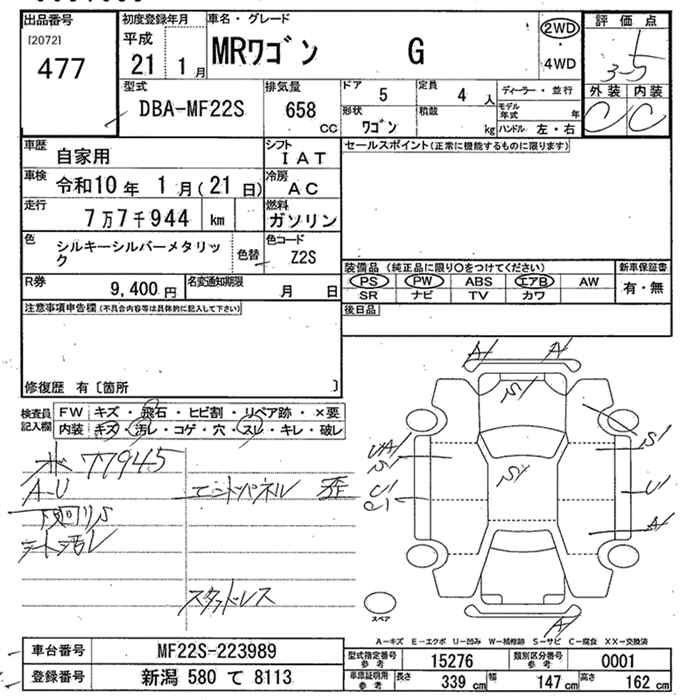 出品番号
[2072]
477
初度登録年月
平成
21 1月
車名・グレード
MRワゴン G
2WD
・
4WD
評価点
3-5
外装 内装
C C
型式
DBA-MF22S
排気量
658
CC
ドア
5
定員
4 人
形状
ワゴン
積載
kg
ディーラー・並行
モデル年式 年
ハンドル 左・右
車歴
自家用
シフト
IAT
車検
令和10年 1月(21日)
冷房
AC
走行
7万7千944 km
燃料
ガソリン
色
シルキーシルバーメタリック
色替
色コード
Z2S
R券
9,400円
名変通知期限
月 日
セールスポイント(正常に機能するものに限ります)
装備品 (純正品に限り○をつけてください)
新車保証書
PS PW ABS エアB AW
有・無
SR ナビ TV カワ
後日品
注意事項申告欄(不具合内容等は具体的に記入して下さい)
修復歴 有〔箇所 〕
検査員記入欄
FW キズ・飛石・ヒビ割・リペア跡・×要
内装 キズ・汚レ・コゲ・穴・スレ・キレ・破レ
ホ 77945
A-U
下廻りS
シート汚レ
エンドパネル 歪
スタッドレス
A1 A1
S1
UA1
S1
S1
S1
U1
A1
A1
スペア
A-キズ E-エクボ U-凹み W-補修跡 S-サビ C-腐食 XX-交換済
車台番号
MF22S-223989
登録番号
新潟 580 て 8113
型式指定番号
参考
15276
類別区分番号
参考
0001
車庫証明用
参考
長さ
339 cm
幅
147 cm
高さ
162 cm